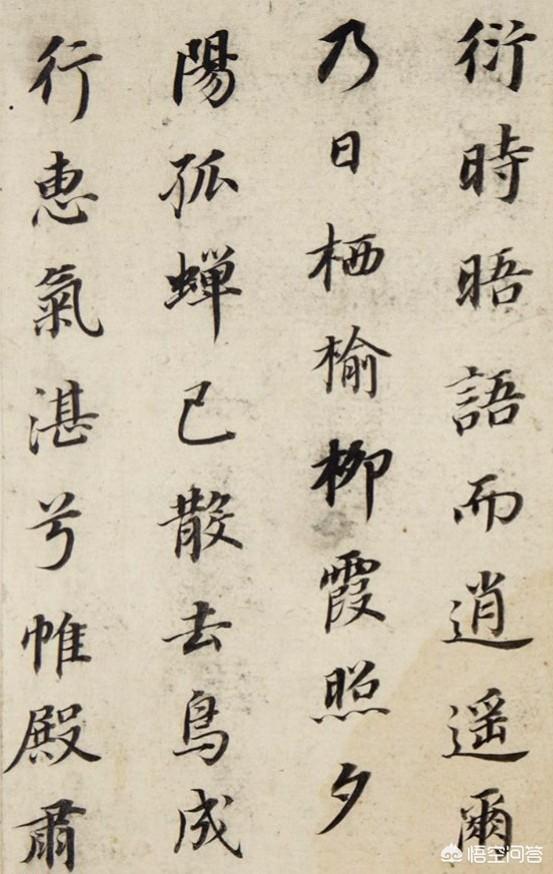 衍時晤語而逍遥爾
乃日栖榆柳霞照夕
陽孤蟬已散去鳥成
行惠氣湛兮帷殿肅
悟空问答